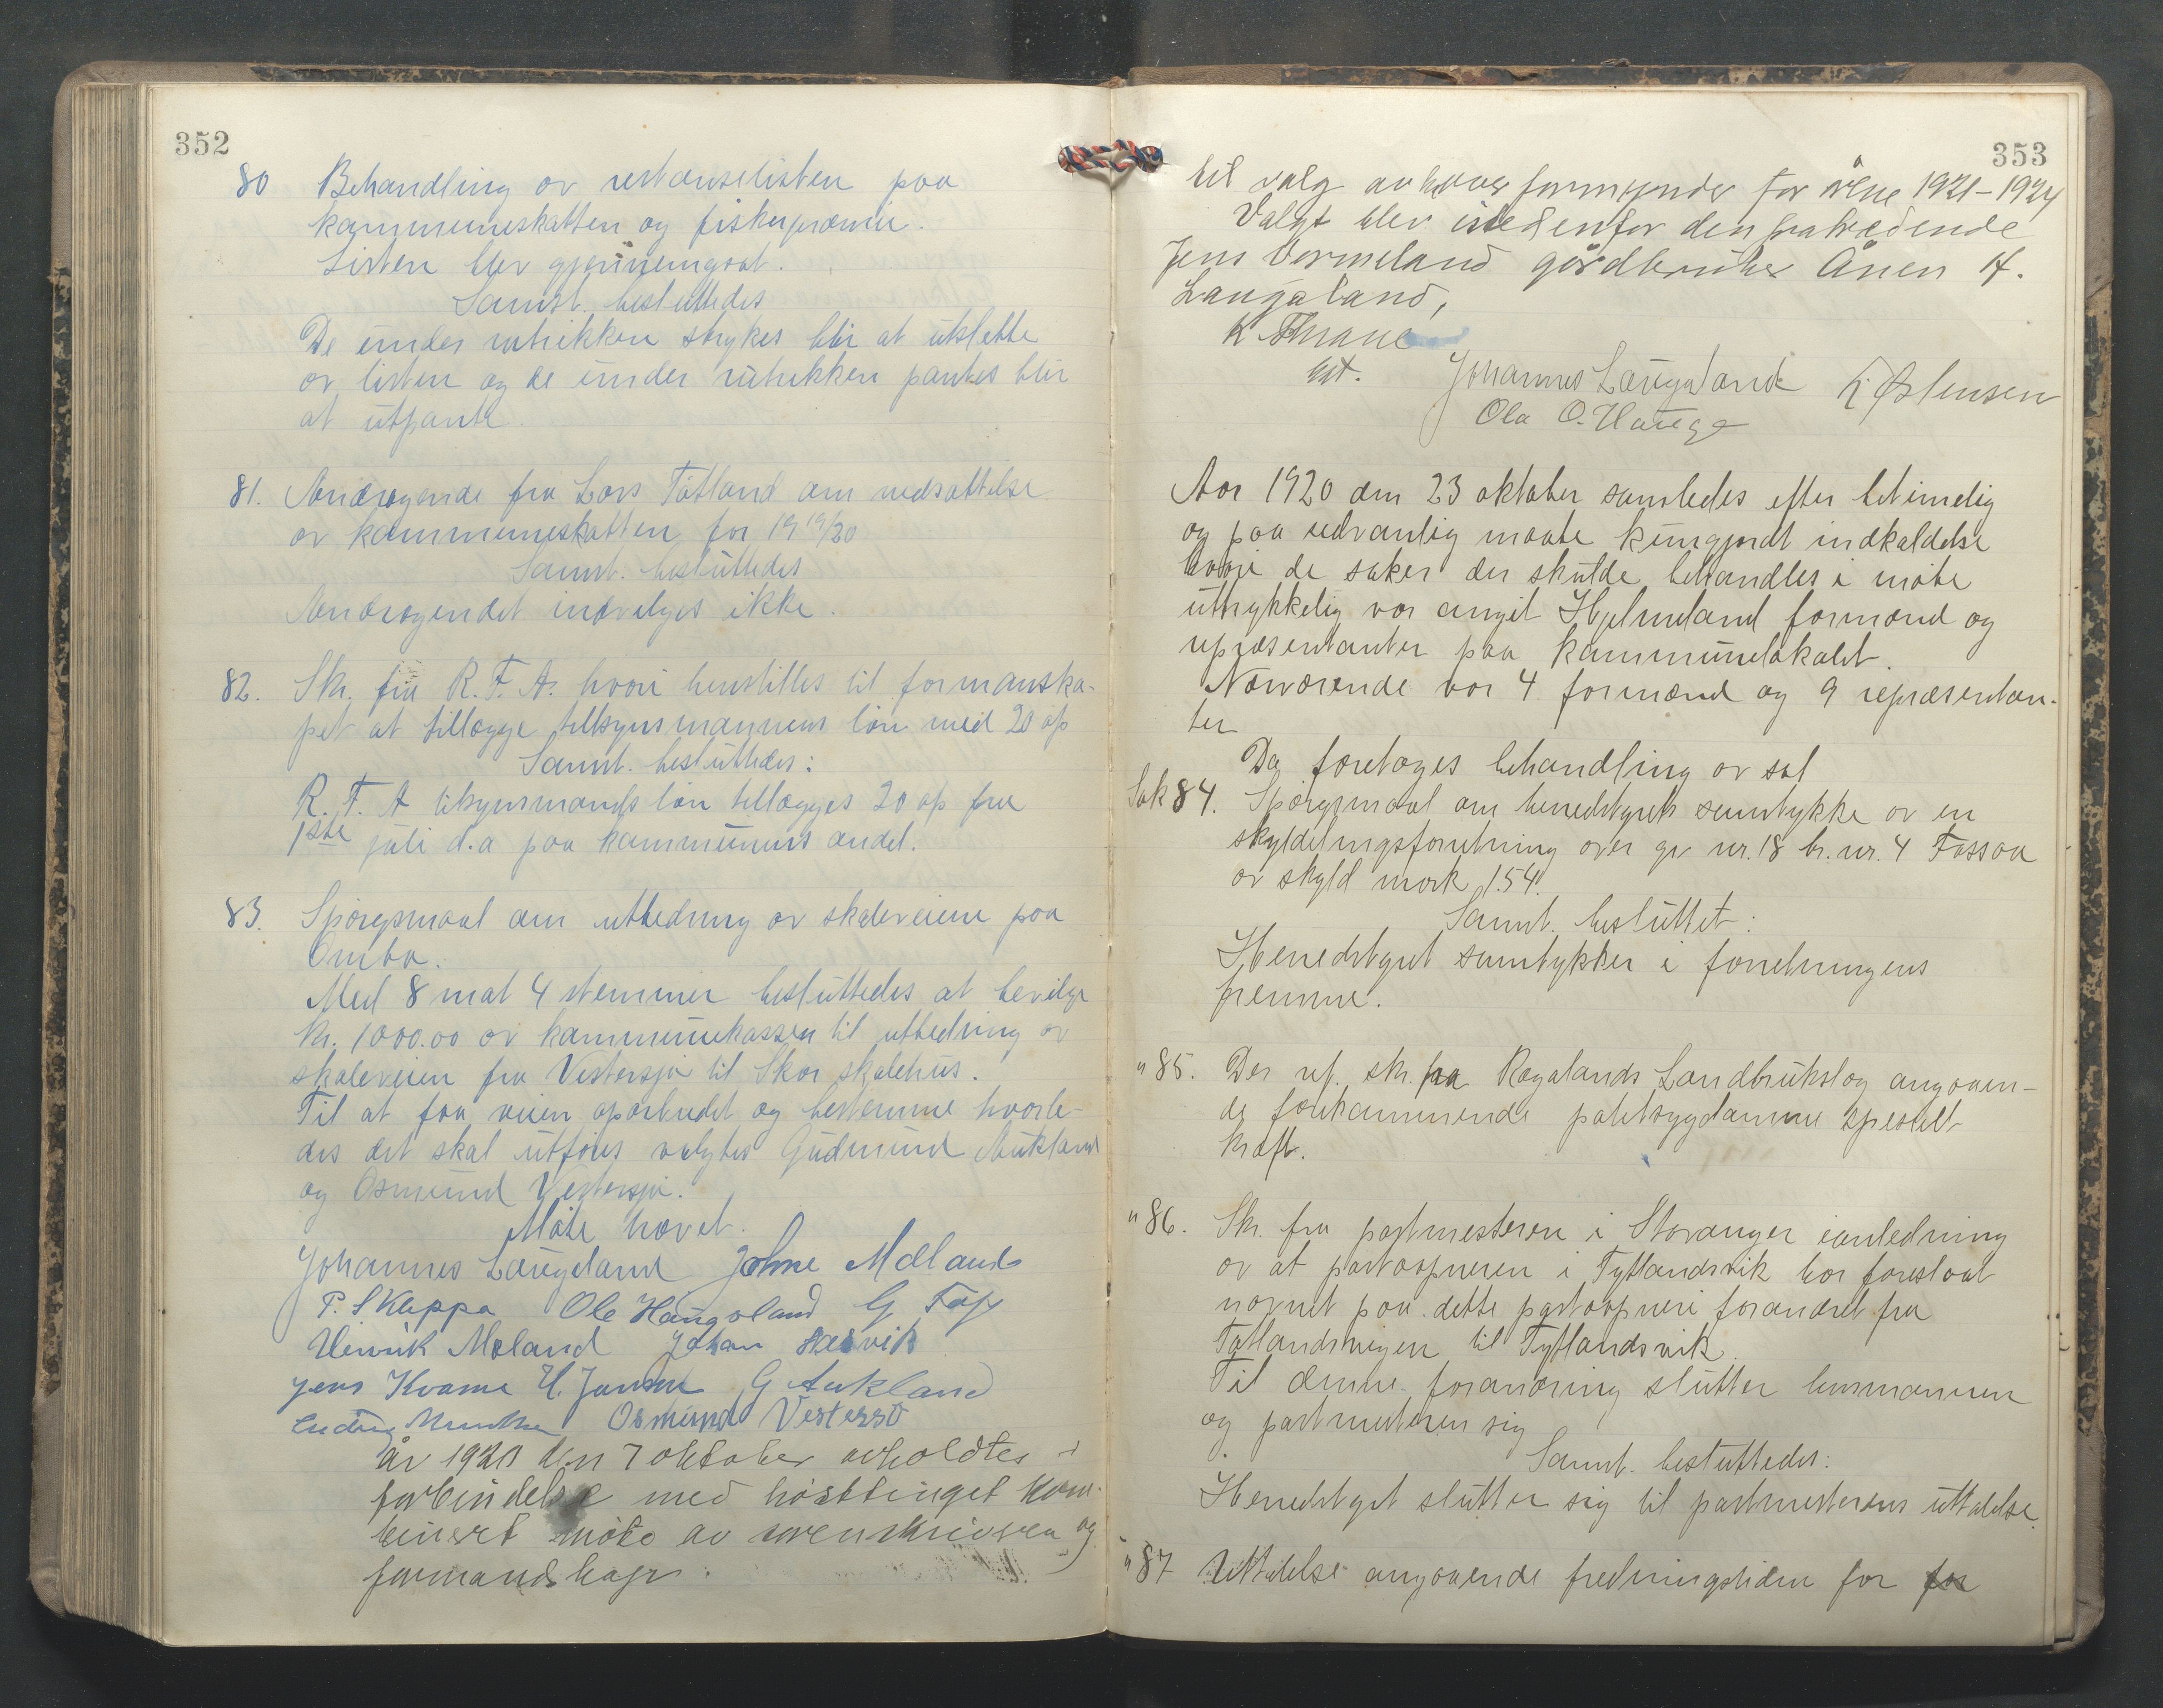 352
80 Behandling av restanselisten paa
kommuneskatten og fiskepræmie.
Listen blev gjennemgaat.
Samt. besluttedes
De under rubrikken strykes blir at utslette
av listen og de under rubrikken pantes blir
at utpante.
81. Andragende fra Lars Tøtland om nedsættelse
av kommuneskatten for 1919/20
Samt. besluttedes
Andragendet indvilges ikke.
82. Skr. fra R. F. A. hvori henstilles til formanska-
pet at tillægge tilsynsmannens løn med 20 op
Samt. besluttedes:
R. F. A tilsynsmands løn tillægges 20 op fra
1ste juli d.a paa kommunens andel.
83. Spørgsmaal om utbedring av skoleveiene paa
Ombo.
Med 8 mot 4 stemmer besluttedes at bevilge
kr. 1000.00 av kommunekassen til utbedring av
skoleveien fra Vestersjø til Skor skolehus.
Til at faa veien oparbeidet og bestemme hvorle-
des det skal utføres valgtes Gudmund Aukland
og Osmund Vestersjø.
Møte hævet.
Johannes Laugaland Johne Mæland
P. S Kleppa Ole Haugaland G. Fossaa
Henrik Mæland Johan
Jens Kvame H. Jansen G Aukland
Osmund Vestersø
År 1920 den 7 oktober avholdtes i
forbindelse med høsttinget kom-
binert møte av sorenskriveren og
formandskap.
353
til valg av formynder for årene 1921-1924
Valgt blev istedenfor den fratredende
Jens Vormeland gårdbruker Ånen H.
Laugaland,
K. Thrane
Johannes Laugaland K. Østensen
Ola O. Hauge
Aar 1920 den 23 oktober samledes efter betimelig
og paa sedvanlig maate kungjordt indkaldelse
hvori de saker der skulde behandles i møte
uttrykkelig var angit Hjelmeland formænd og
repræsentanter paa kommunelokalet.
Nærværende var 4 formænd og 9 repræsentan-
ter
Da foretoges behandling av sak
Sak 84. Spørgsmaal om herredstyrets samtykke av en
skyldelingsforretning over gr. nr. 18 br. nr. 4 Fossaa
av skyld mark 1.54.
Samt. besluttet:
Herredstyret samtykker i forretningens
fremme.
" 85. Der ref. skr. fra Rogalands Landbrukslag angaaen-
de forekommende potetsygdomme specielt
kræft.
" 86. Skr. fra postmesteren i Stavanger i anledning
av at postaapneren i Tytlandsvik har foreslaat
navnet paa dette postaapneri forandret fra
Tøtlandsvigen til Tytlandsvik.
Til denne forandring slutter lensmannen
og postmesteren sig
Samt. besluttedes:
Herredstyret slutter sig til postmesterens uttalelse.
" 87 Uttalelse angaaende fredningstiden for